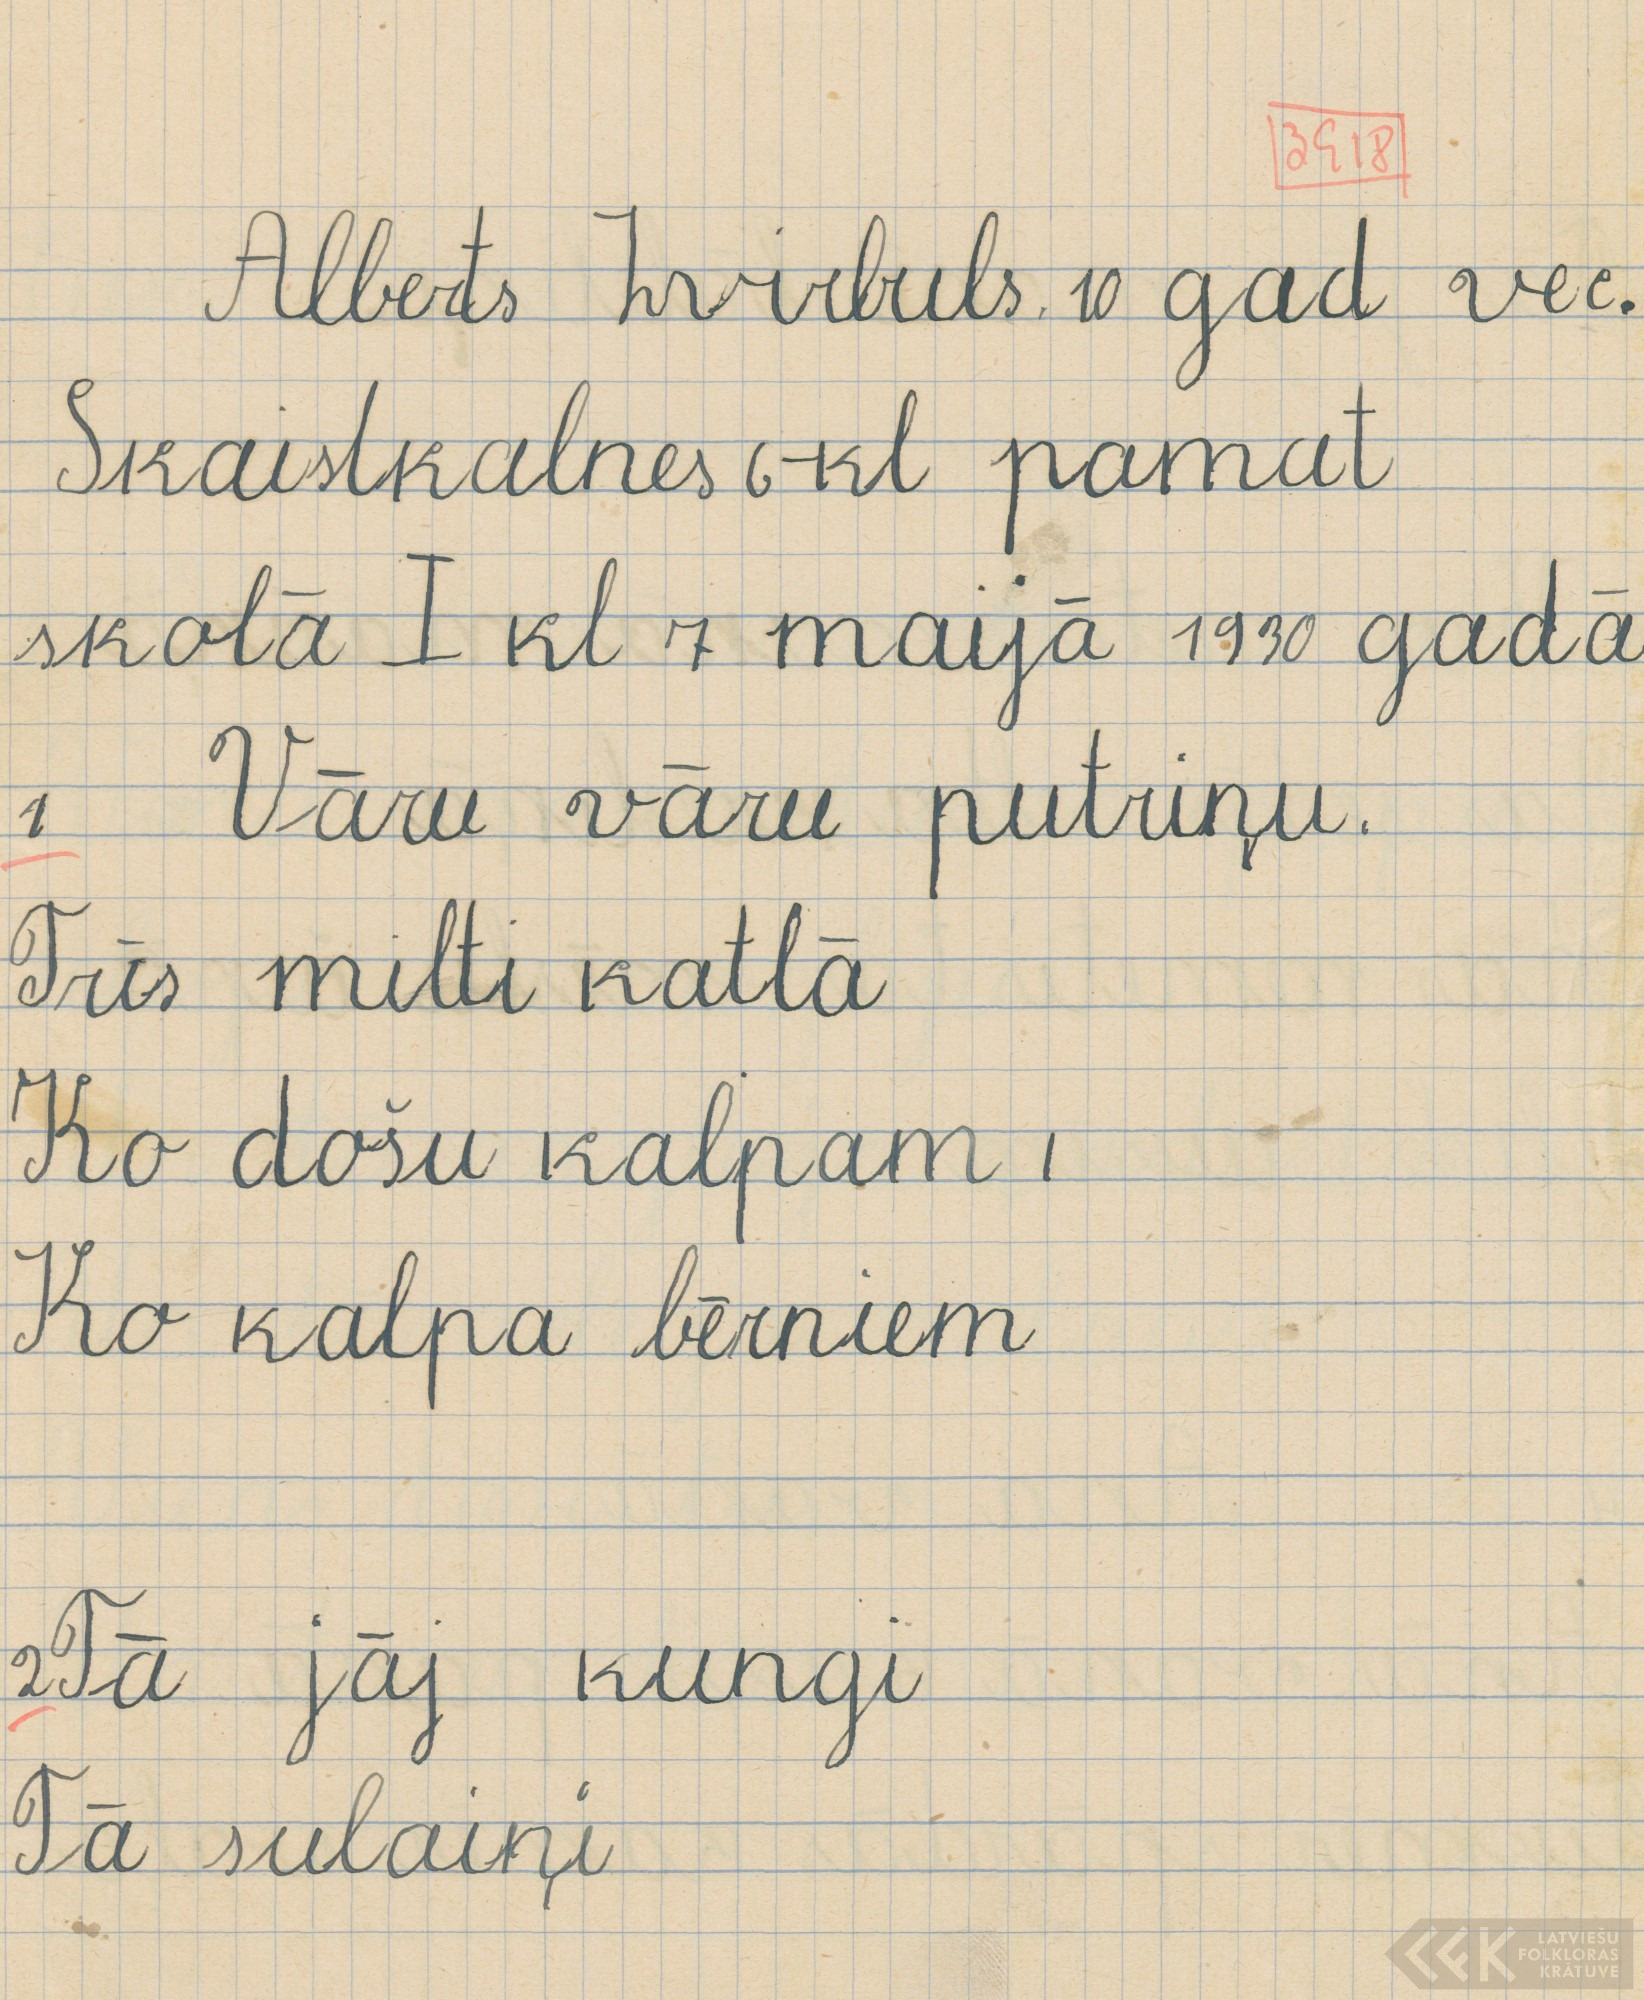 3918
Alberts Zvirbuls. 10 gad vec.
Skaistkalnes 6-kl pamat
skolā I kl 7 maijā 1930 gadā
1 Vāru vāru putriņu.
Trīs milti katlā
Ko došu kalpam ,
Ko kalpa bērniem
2 Tā jāj kungi
Tā sulaiņi
LATVIEŠU
FOLKLORAS
KRĀTUVE